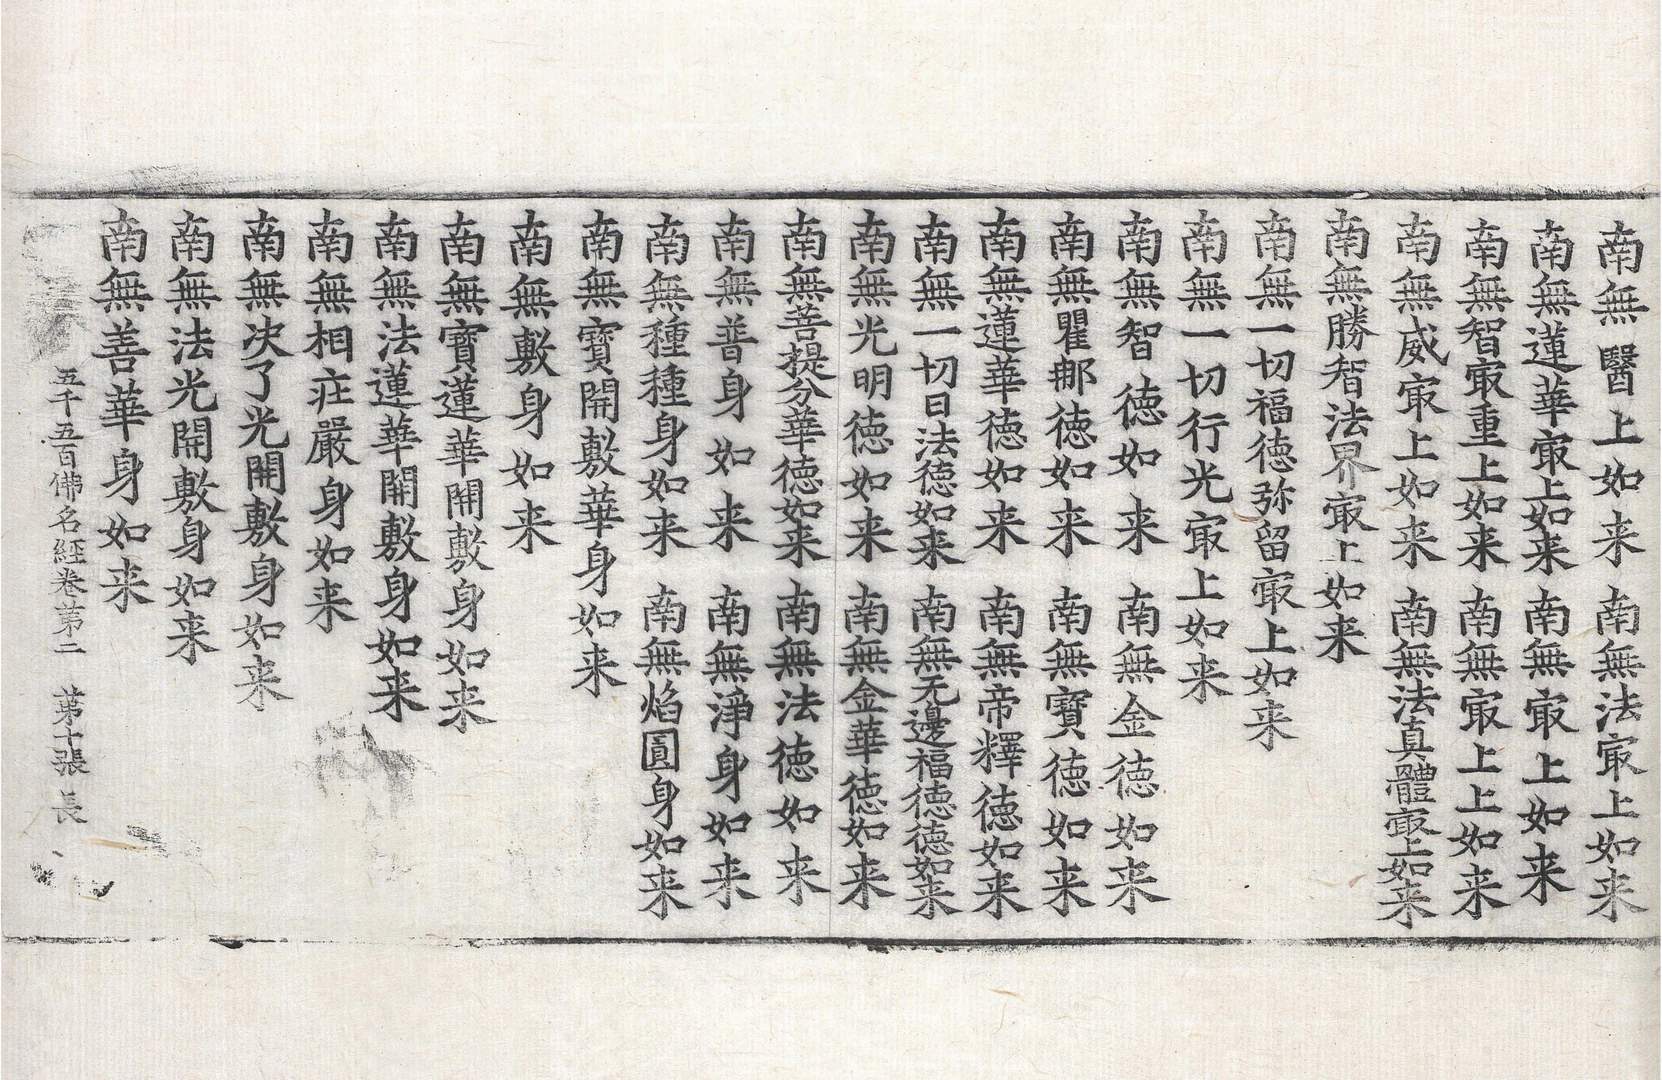 南無醫上如来 南無法㝡上如来
南無蓮華㝡上如来 南無㝡上如来
南無智㝡重上如来 南無㝡上上如来
南無威㝡上如来 南無法真體㝡上如来
南無勝智法界㝡上如来
南無一切福徳弥留㝡上如来
南無一切行光㝡上如来
南無智徳如来 南無金徳如来
南無瞿那徳如来 南無寶徳如来
南無蓮華徳如来 南無帝釋徳如来
南無一切日法徳如来 南無无邊福徳徳如来
南無光明徳如来 南無金華徳如来
南無菩提分華徳如来 南無法徳如来
南無普身如来 南無淨身如来
南無種種身如来 南無焰圓身如来
南無寶開敷華身如来
南無敷身如来
南無寶蓮華開敷身如来
南無法蓮華開敷身如来
南無相庄嚴身如来
南無决了光開敷身如来
南無法光開敷身如来
南無善華身如来
五千五百佛名經卷第二 第十張 長